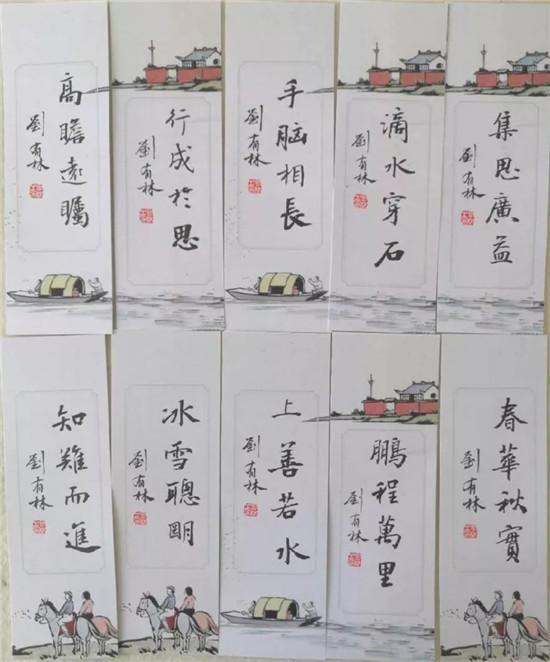 高瞻遠矚
劉有林
行成於思
劉有林
手脑相長
劉有林
滴水穿石
劉有林
集思廣益
劉有林
知難而進
劉有林
冰雪聰明
劉有林
上善若水
劉有林
鵬程萬里
劉有林
春華秋實
劉有林